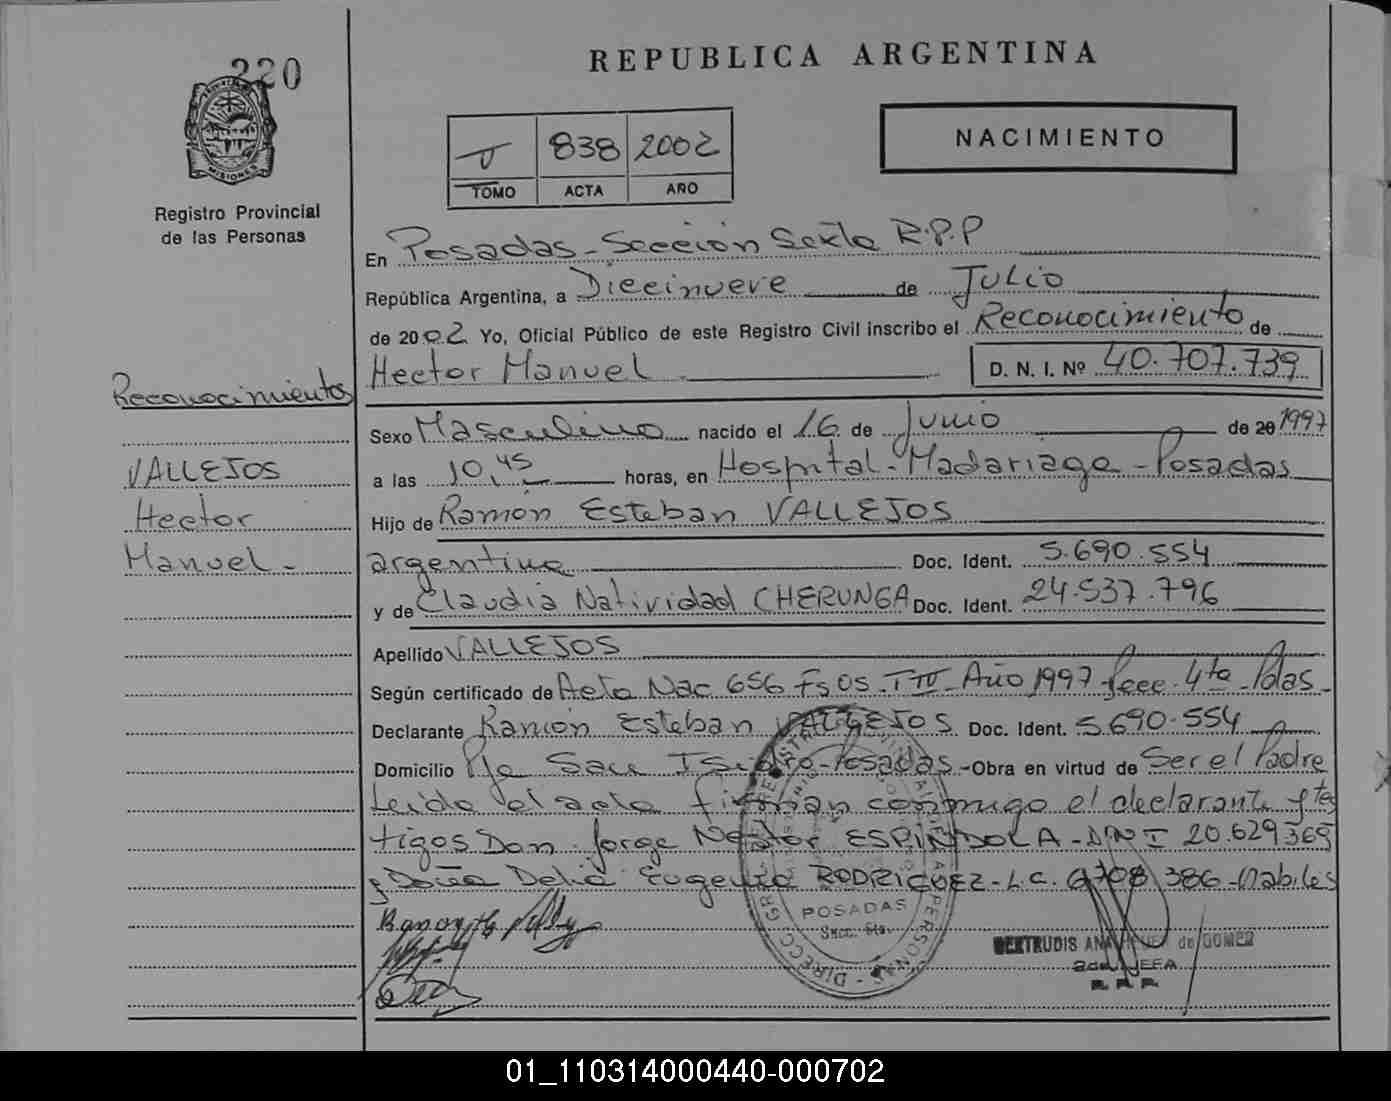 220
REPUBLICA ARGENTINA
838 2002
TOMO ACTA AÑO
NACIMIENTO
MISIONES
Registro Provincial
de las Personas
En Posadas - Sección Sexta R.P.P
República Argentina, a Diecinueve de Julio
de 2002 Yo, Oficial Público de este Registro Civil inscribo el Reconocimiento de
Hector Manuel D. N. I. Nº 40.707.739
Reconocimientos
VALLEJOS
Hector
Manuel -
Sexo Masculino nacido el 16 de Junio de 20 1997
a las 10,45 horas, en Hospital - Madariaga - Posadas
Hijo de Ramón Esteban VALLEJOS
argentino Doc. Ident. 5.690.554
y de Claudia Natividad CHERUNGA Doc. Ident. 24.537.796
Apellido VALLEJOS
Según certificado de Acta Nac 656 Fs 05 - T IV - Año 1997 Secc. 4ta - Pdas -
Declarante Ramón Esteban VALLEJOS Doc. Ident. 5.690.554
Domicilio Pje San Isidro - Posadas - Obra en virtud de Ser el Padre
Leido el acta firman conmigo el declarante y tes
tigos Don Jorge Nestor ESPINDOLA - DNI 20.629369
y Doña Delia Eugenia RODRIGUEZ - L.C. 6708386 - habiles
POSADAS
Secc. 6ta.
GERTRUDIS de GOMEZ
2da. JEFA
R. P. P.
01_110314000440-000702